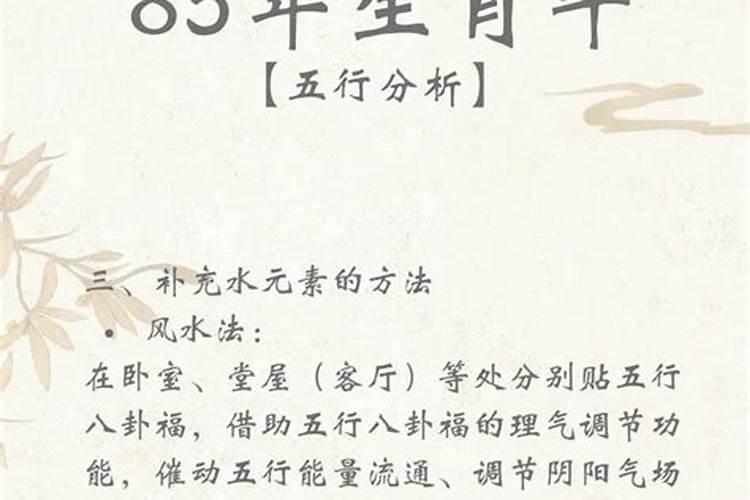 85年生肖牛
【五行分析】
三、补充水元素的方法
• 风水法：
在卧室、堂屋（客厅）等处分别贴五行
八卦福，借助五行八卦福的理气调节功
能，催动五行能量流通、调节阴阳气场